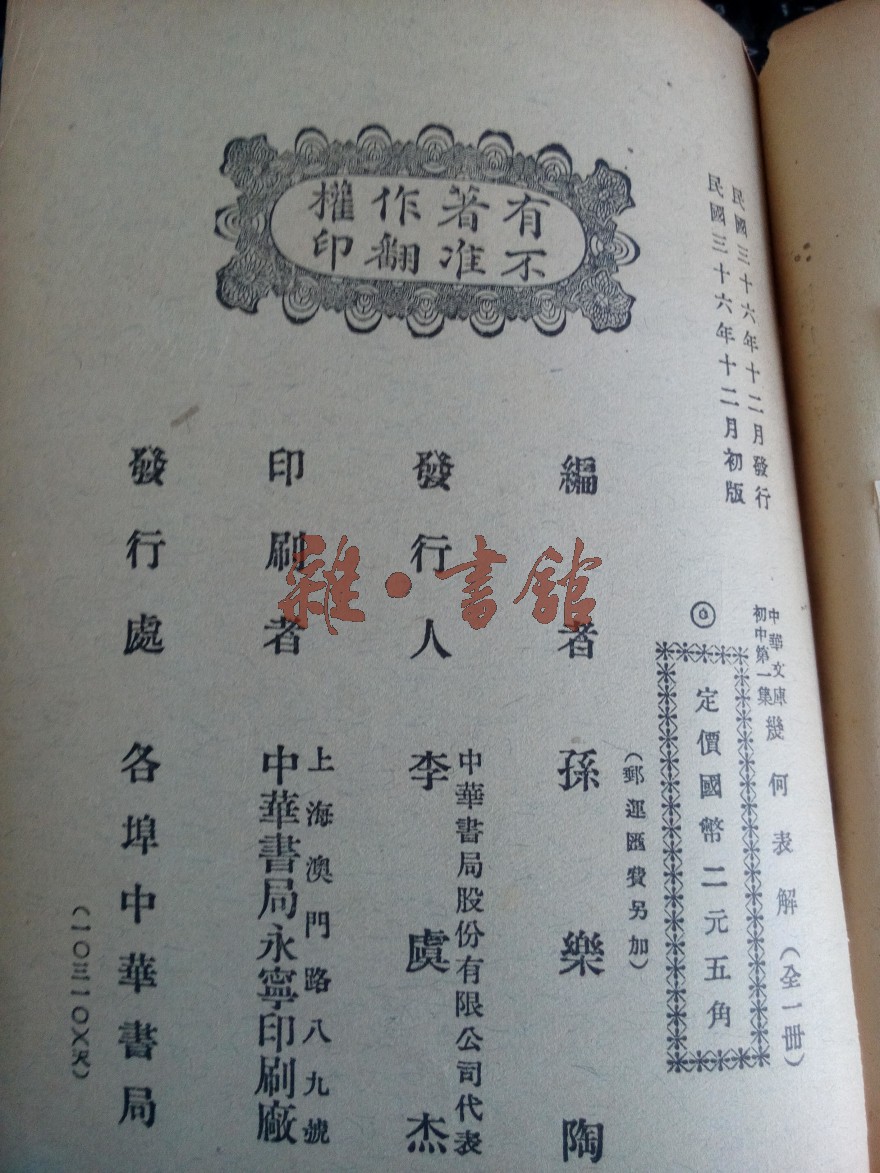 民國三十六年十二月發行
民國三十六年十二月初版
中華文庫
初中第一集
幾何表解（全一冊）
定價國幣二元五角
（郵運匯費另加）
有著作權
不准翻印
編者 孫樂陶
發行人 中華書局股份有限公司代表
李虞杰
印刷者 上海澳門路八九號
中華書局永寧印刷廠
發行處 各埠中華書局
雜·書館